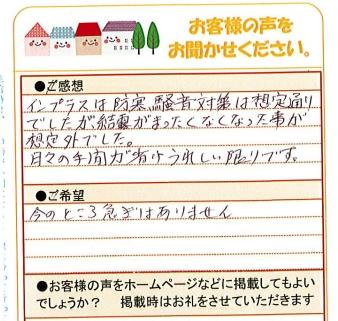 お客様の声を
お聞かせください。
●ご感想
インプラスは防寒、騒音対策は想定通り
でしたが結露がまったくなくなった事が
想定外でした。
日々の手間が省けうれしい限りです。
●ご希望
今のところ急ぎはありません
●お客様の声をホームページなどに掲載してもよい
でしょうか？　掲載時はお礼をさせていただきます